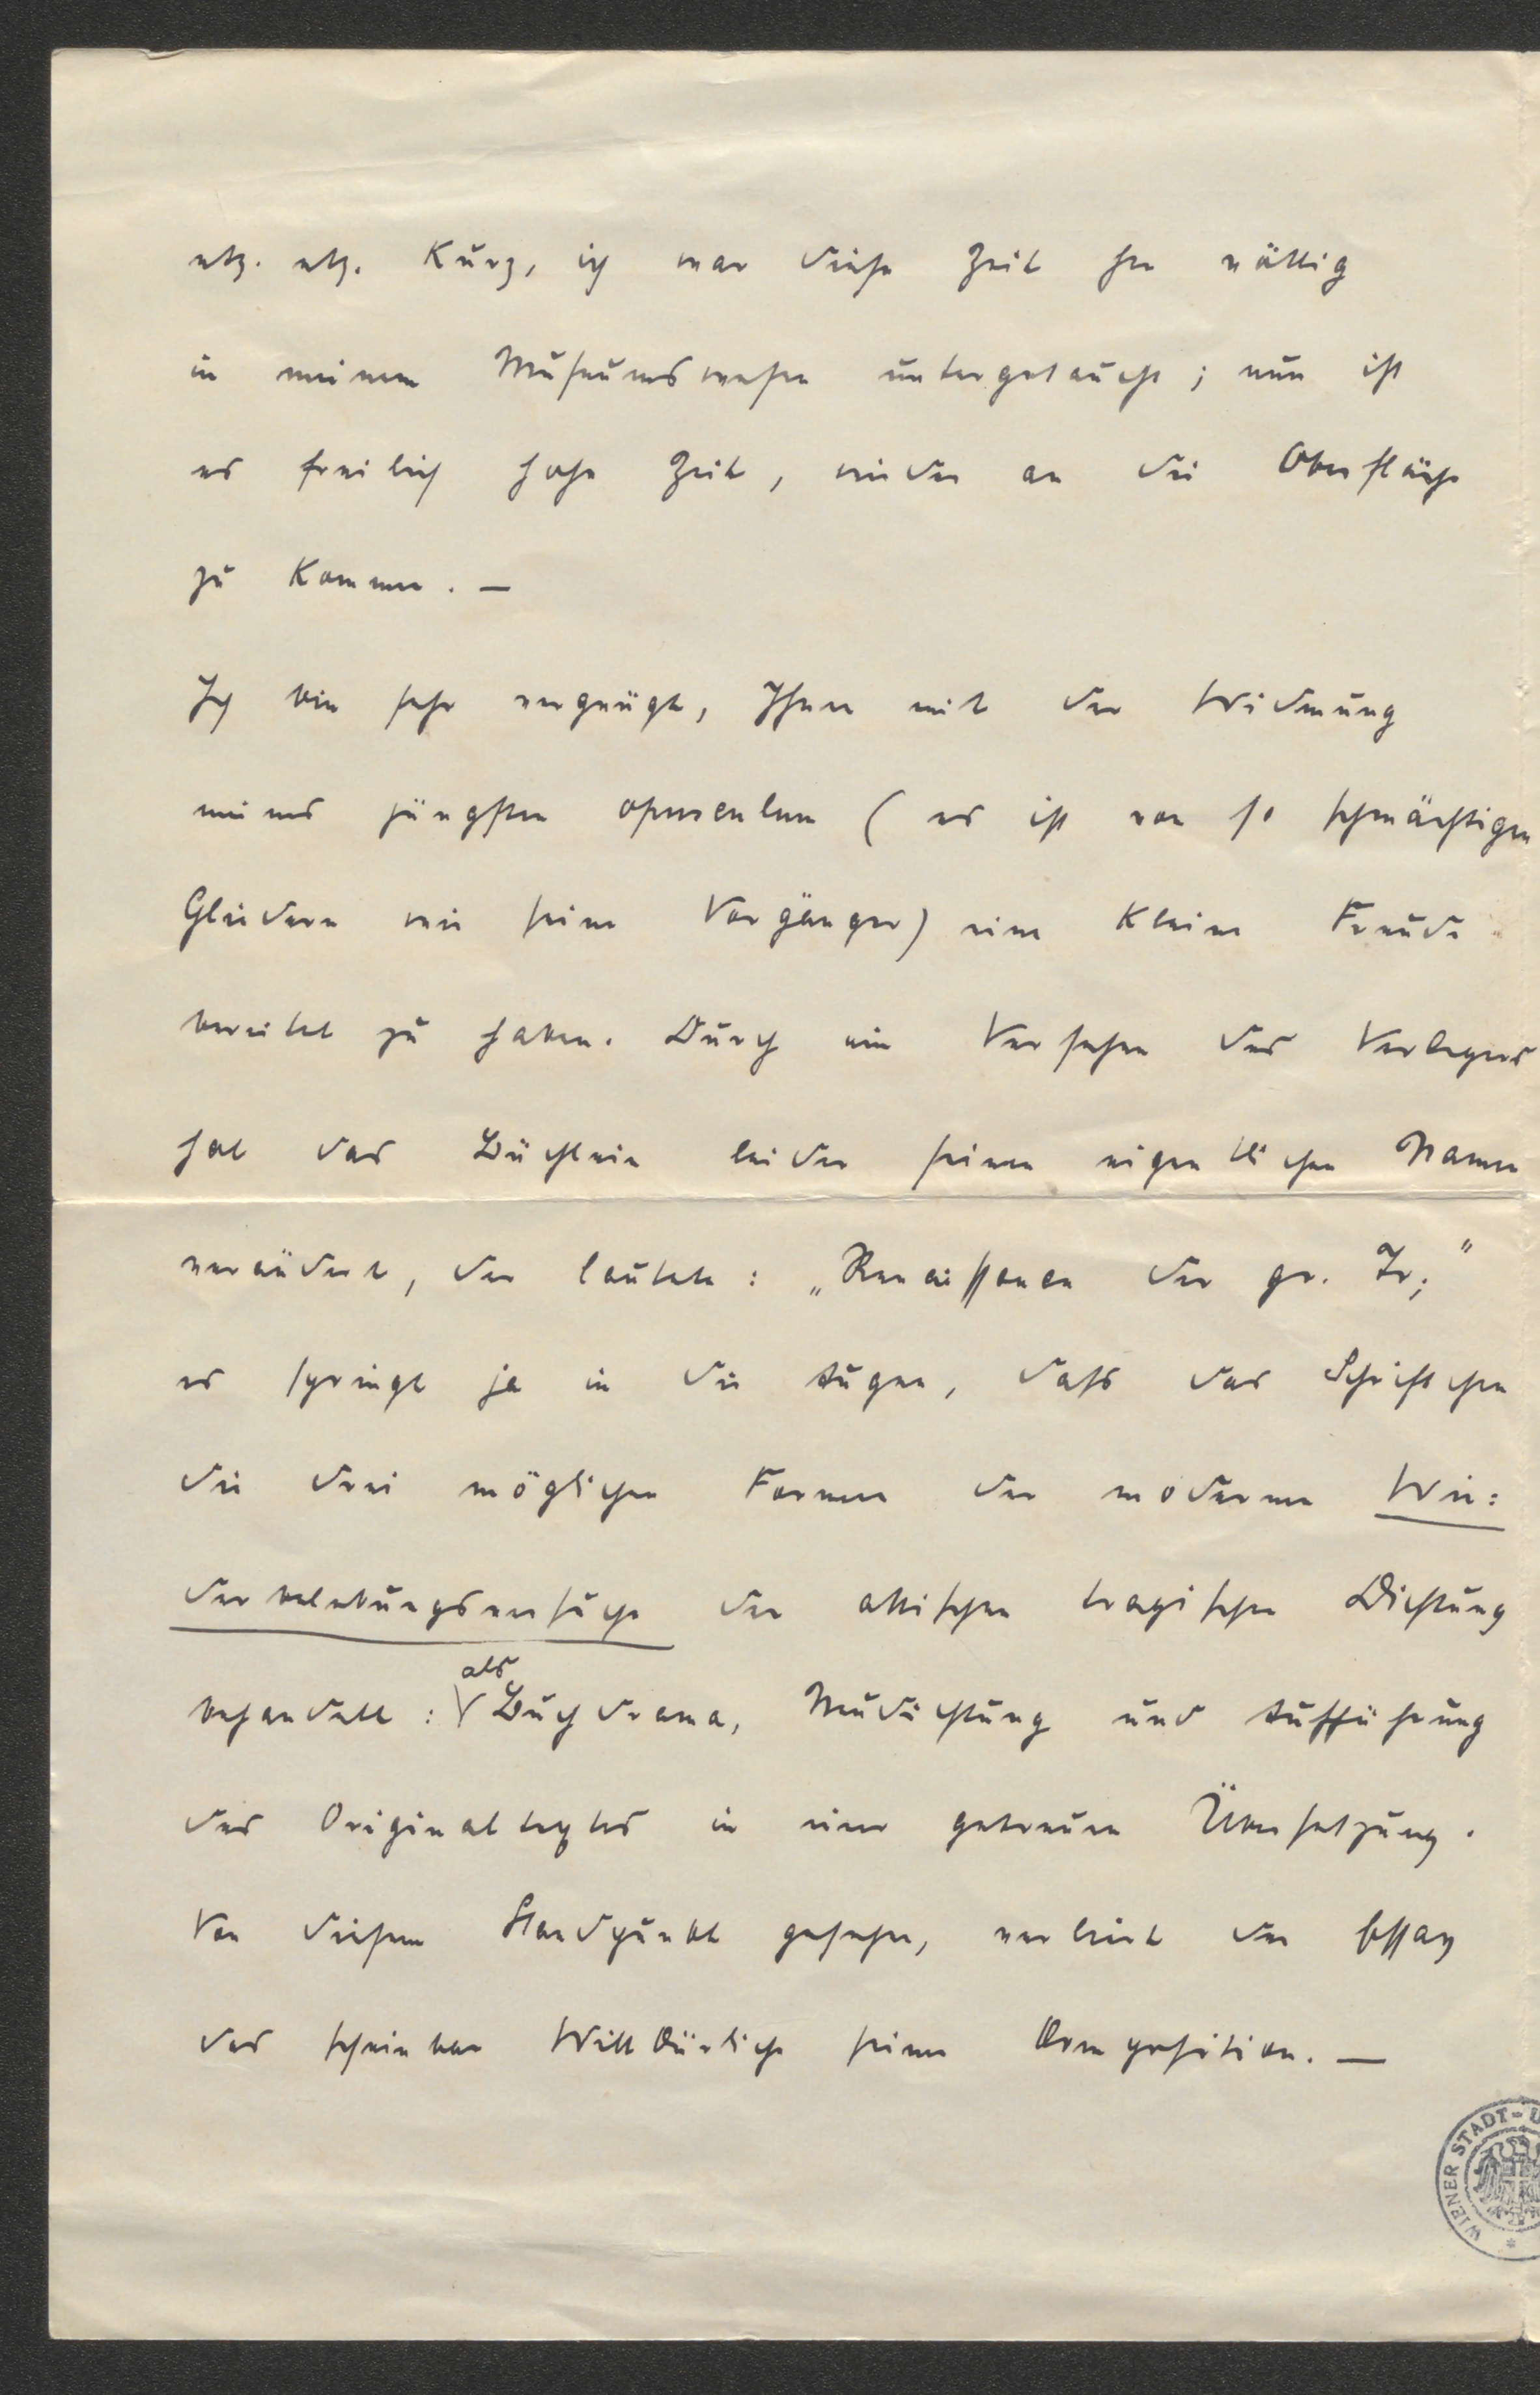 etz. etz. Kurz, ich war diese Zeit her völlig
in meinem Museumswesen untergetaucht; nun ist
es freilich hohe Zeit, wieder an die Oberfläche
zu kommen. —
Ich bin sehr vergnügt, Ihnen mit der Widmung
meines jüngsten opusculum (es ist von so schmächtigen
Gliedern wie seine Vorgänger) eine kleine Freude
bereitet zu haben. Durch ein Versehen des Verlegers
hat das Büchlein leider seinen eigentlichen Namen
verändert, der lautete: „Renaissancen der gr. Tr;"
es springt ja in die Augen, dass das Schriftchen
die drei möglichen Formen der modernen Wie:
derbelebungsversuche der attischen tragischen Dichtung
behandelt: als Buchdrama, Neudichtung und Aufführung
des Originaltextes in einer getreuen Übersetzung.
Von diesem Standpunkt gesehen, verliert der Essay
das scheinbar Willkürliche seiner Komposition. —
WIENER STADT-U